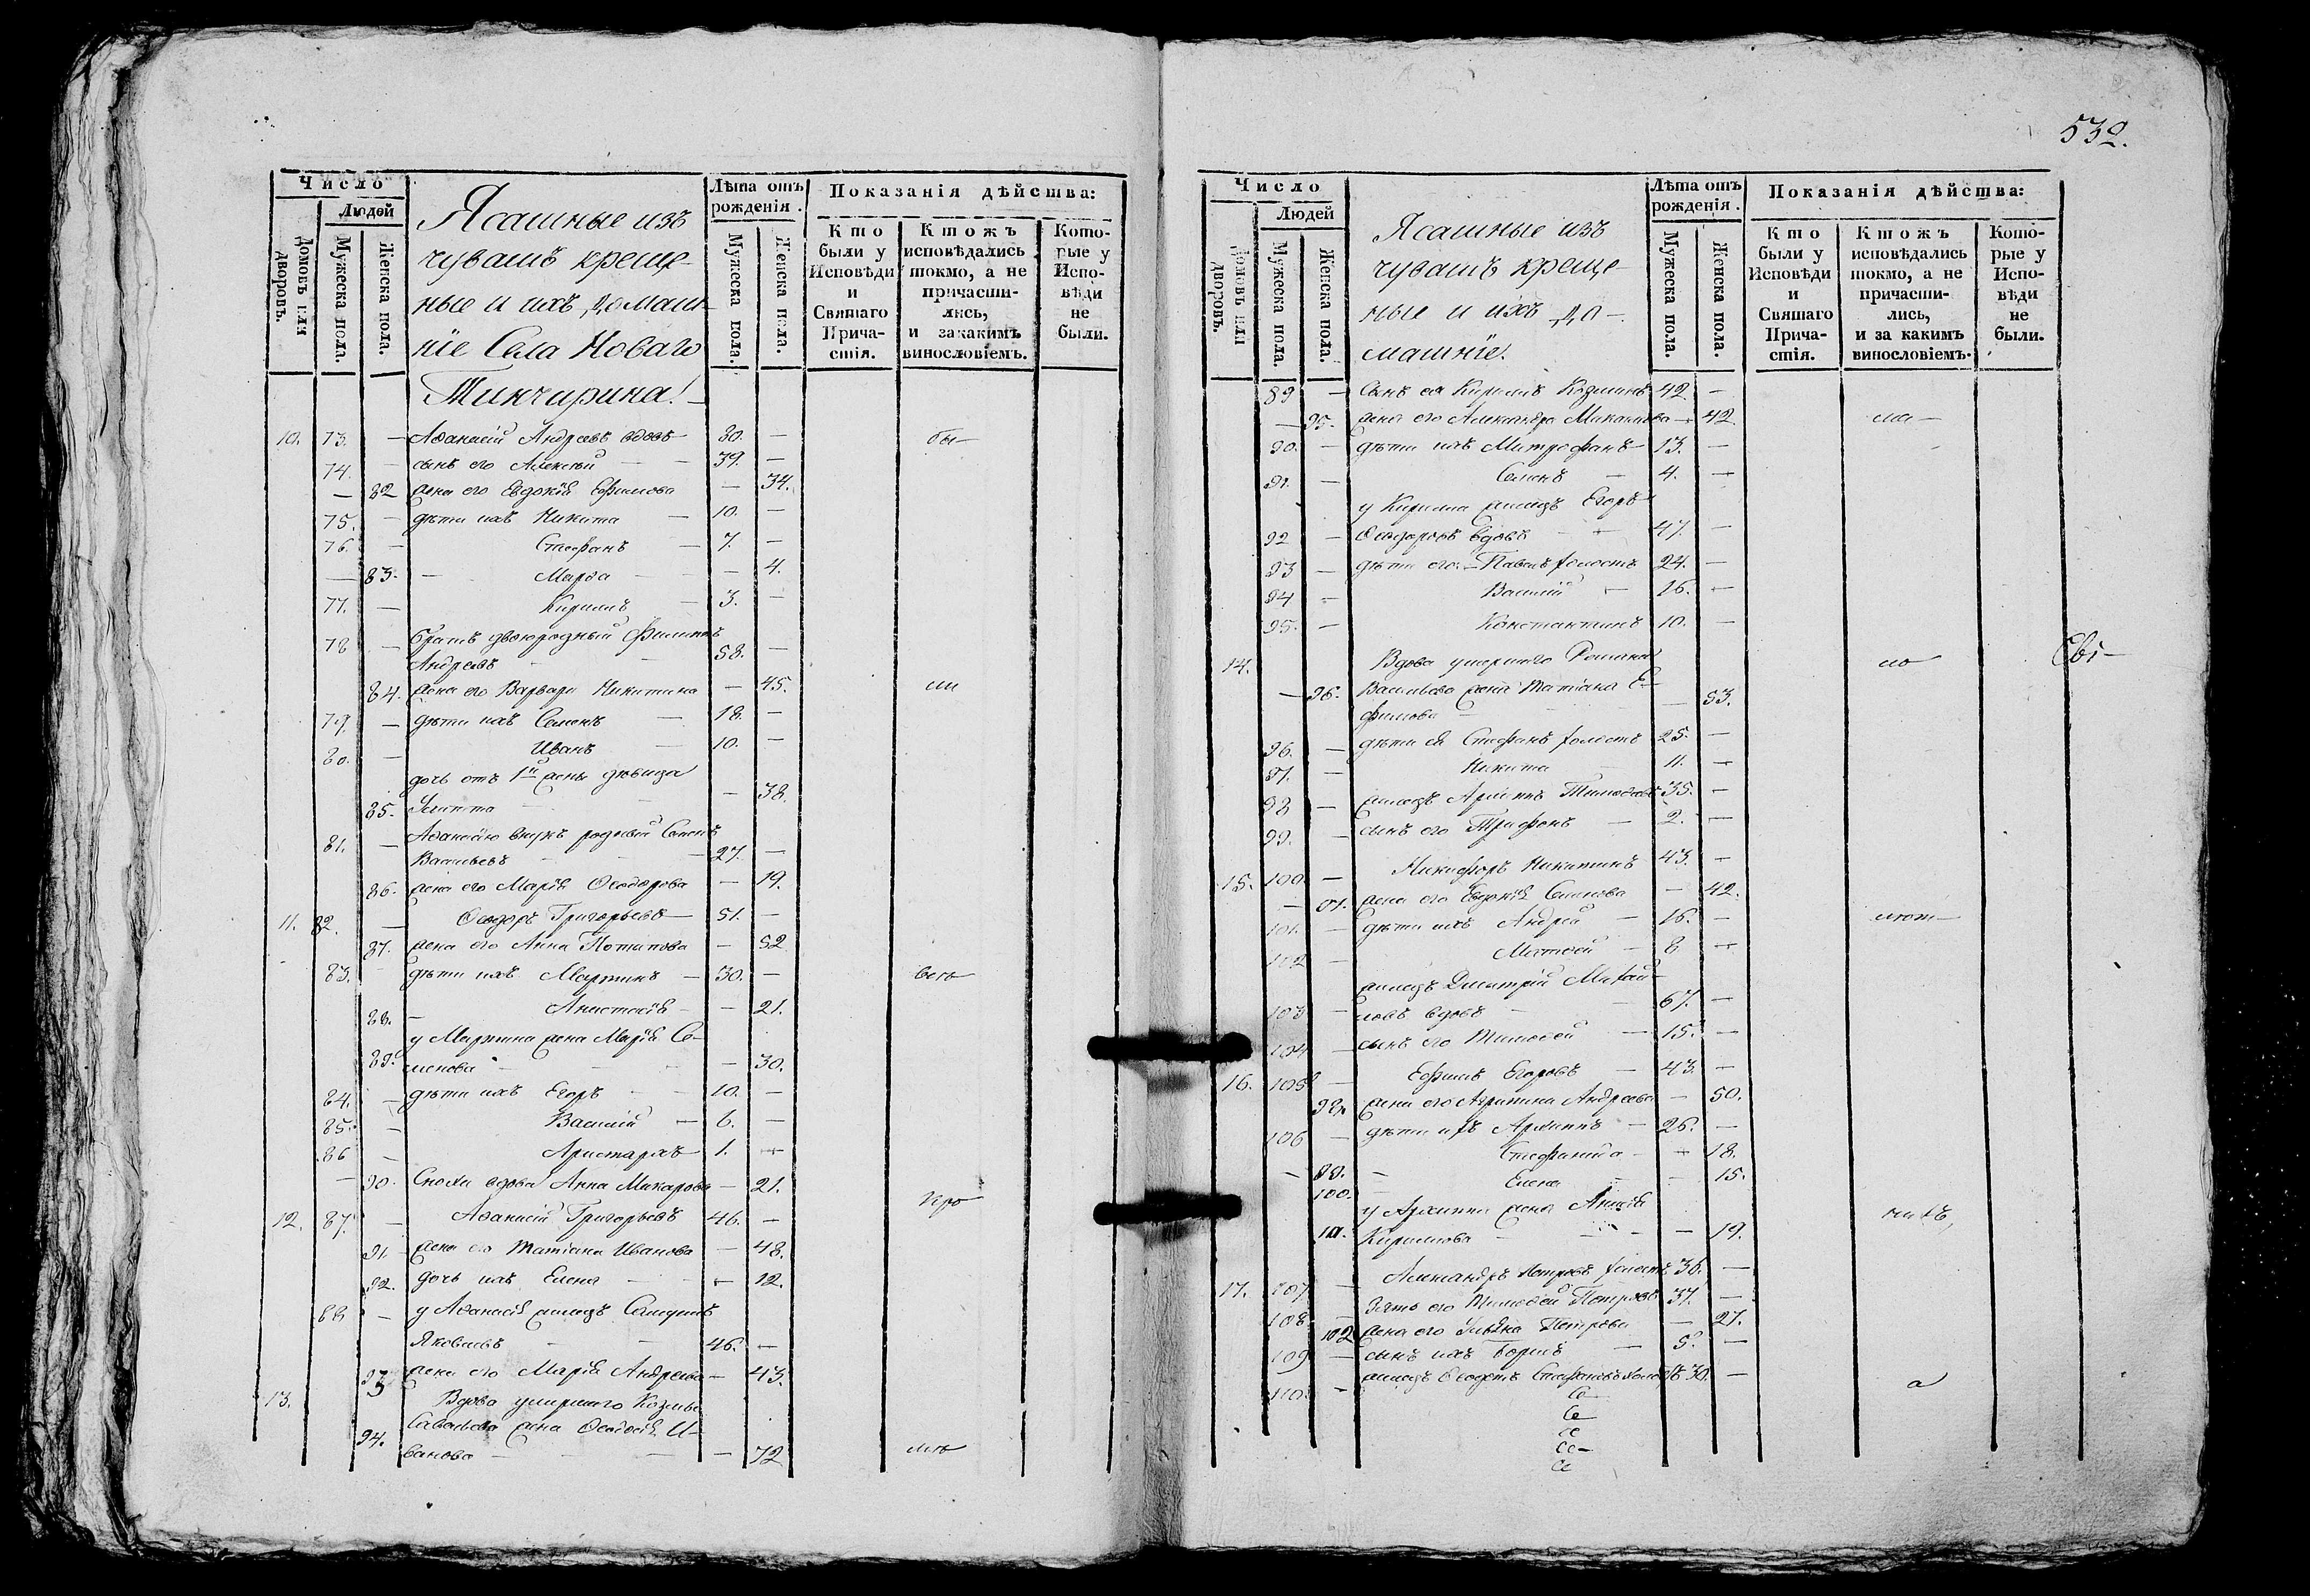 Число
Людей
Домовъ или дворовъ.
Мужеска пола.
Женска пола.
Ясашные изъ
чувашъ креще-
ные и ихъ домаш-
ніе Села Новаго
Тинчирина.
Лѣта отъ рожденія.
Мужеска пола.
Женска пола.
Показанія дѣйства:
Кто были у Исповѣди и Святаго Прича-стія.
Ктожъ исповѣдались токмо, а не причасти-лись, и закакимъ винословіемъ.
Кото-рые у Испо-вѣди не были.
10. 73. — Аѳанасій Андреевъ вдовъ 80. — бы—
74. — сынъ его Алексѣй — 39. —
— 82 жена его Евдокія Ефимова — 34.
75. — дѣти ихъ Никита — 10. —
76. — Стефанъ — 7. —
— 83. — Марѳа — — 4.
77. — Кирилъ — 3. —
78 — братъ двоюродный Филипъ
Андреевъ — 58. —
84. жена его Варвара Никитина — 45. ли
79. — дѣти ихъ Семенъ — 18. —
80. — Иванъ — 10. —
дочь отъ 1й жены дѣвица
85. Улитта — — 38.
81. — Аѳанасію внукъ родный Семенъ
Васильевъ — 27. —
86. жена его Марія Ѳеодорова — 19.
11. 82. — Ѳеодоръ Григорьевъ — 51. —
87. жена его Анна Потапова — 52
83. дѣти ихъ Мартинъ — 30. — всю
88. — Анастасія — — 21.
у Мартина жена Марія Се-
89. менова — — 30.
84. — дѣти ихъ Егоръ — 10. —
85. — Василій — 6. —
86 — Аристархъ 1. —
— 90. Сноха вдова Анна Макарова — 21.
12. 87. — Аѳанасій Григорьевъ 46. — про
91. жена его Татіана Иванова — 48.
92. дочь ихъ Елена — — 12.
88 — у Аѳанасія
Яковлевъ — 46. —
93 жена его Марія Андреева — 43.
13. Вдова умершаго Козмы
94. Савельева жена Ѳеодосія И-
ванова — — 72

532.
Число
Людей
Домовъ или дворовъ.
Мужеска пола.
Женска пола.
Ясашные изъ
чувашъ креще-
ные и ихъ до-
машніе.
Лѣта отъ рожденія.
Мужеска пола.
Женска пола.
Показанія дѣйства:
Кто были у Исповѣди и Святаго Прича-стія.
Ктожъ исповѣдались токмо, а не причасти-лись, и за какимъ винословіемъ.
Кото-рые у Испо-вѣди не были.
89 — Сынъ ея Кирилъ Козминъ 42 —
— 95. жена его Александра — 42
90. — дѣти ихъ Митрофанъ 13. —
91. — Семенъ — 4. —
у Кирила Егоръ
92 — Ѳеодоровъ вдовъ — 47. —
93 — дѣти его Павелъ холостъ 24. —
94 — Василій — 16. —
95. — Константинъ 10. —
14. Вдова умершаго Романа ло Сві—
— 96. Васильева жена Татіана Е-
фимова — — 53.
96. — дѣти ея Стефанъ холостъ 25. —
97. — Никита 11. —
98 — Архипъ 35. —
99. — сынъ его Трифонъ — 2. —
15. 100. — Никифоръ Никитинъ 43. —
— 97. жена его Евдокія Семенова — 42.
101. — дѣти ихъ Андрей — 16. —
102 — Матвей — 8 —
Дмитрій Михай-
103 — ловъ вдовъ — 67. —
104 — сынъ его Тимоѳей — 15. —
16. 105. — Ефимъ Егоровъ — 43. —
98. жена его Агрипина Андреева — 50.
106 — дѣти ихъ Архипъ — 26. —
— 99. — Стефанида — — 18.
100. Елена — — 15.
у Архипа жена
101. Кирилова — — 19.
17. 107 — Александръ Петровъ холостъ 36. —
108. — Зять его Тимоѳей Петровъ 37. —
102 жена его Петрова — 27.
109 — сынъ ихъ Борисъ — 5. —
110. — Стефановъ 30. — а
Се
Се
Се
Се—
Се